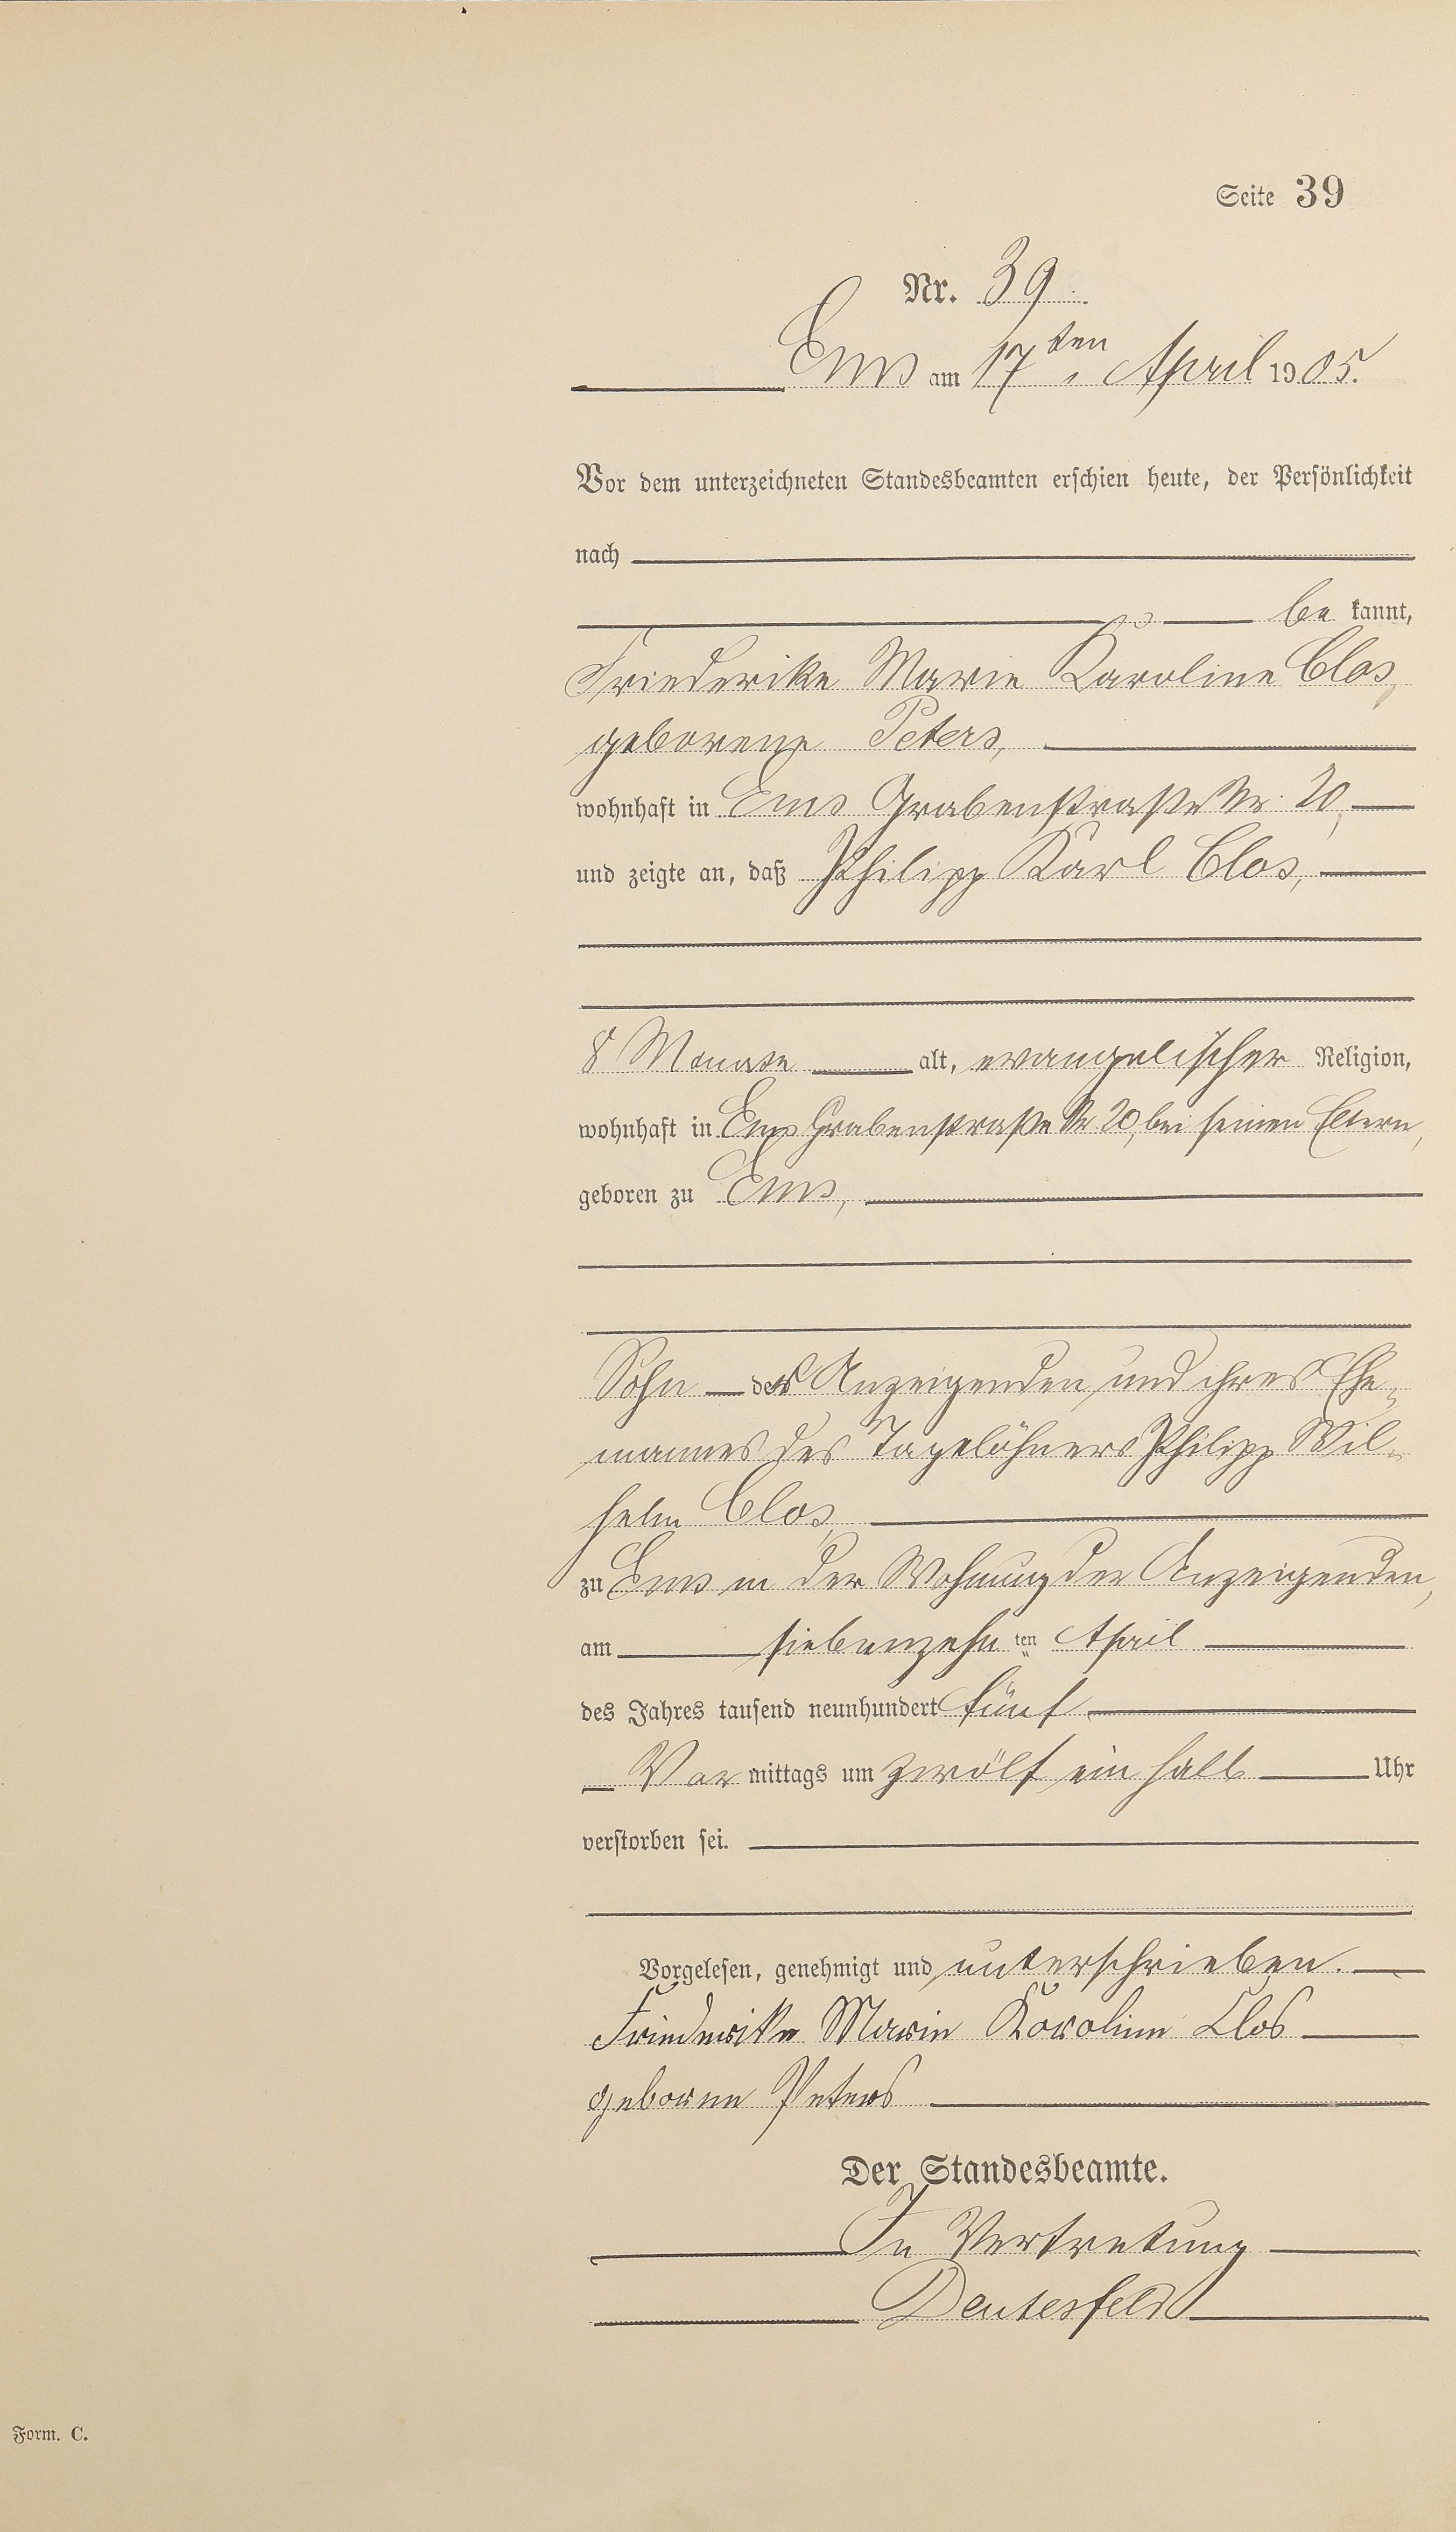 Seite 39
Nr. 39.
Ems am 17ten April 1905.
Vor dem unterzeichneten Standesbeamten erschien heute, der Persönlichkeit
nach
be kannt,
Friederike Marie Karoline Clos,
geborene Peters,
wohnhaft in Ems Grabenstraße Nr. 20,
und zeigte an, daß Philipp Karl Clos,
8 Monate alt, evangelischer Religion,
wohnhaft in Ems Grabenstraße Nr 20, bei seinen Eltern,
geboren zu Ems,
Sohn der Anzeigenden und ihres Ehe-
mannes des Tagelöhners Philipp Wil-
helm Clos,
zu Ems in der Wohnung der Anzeigenden,
am siebenzehn ten April
des Jahres tausend neunhundert fünf
Vor mittags um zwölf ein halb Uhr
verstorben sei.
Vorgelesen, genehmigt und unterschrieben.
Friederike Marie Karoline Clos
geborne Peters
Der Standesbeamte.
In Vertretung
Deutesfeld
Form. C.